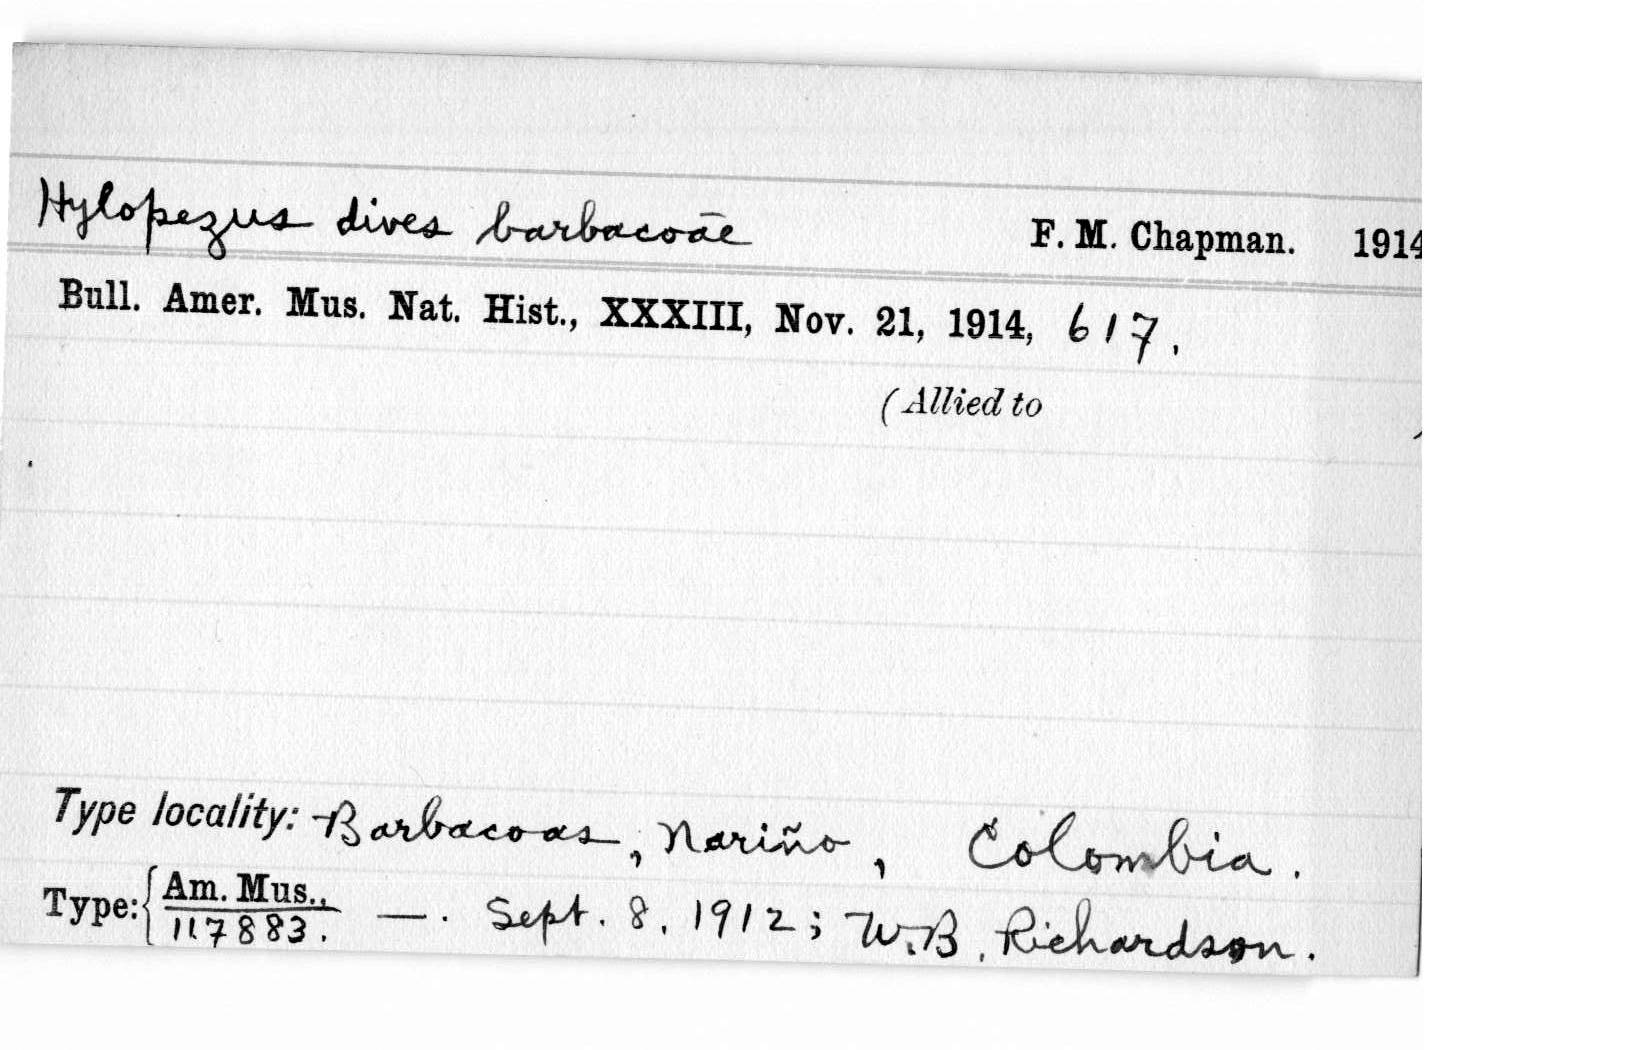 Hylopezus dives barbacoāe F. M. Chapman. 1914
Bull. Amer. Mus. Nat. Hist., XXXIII, Nov. 21, 1914, 617.
(Allied to )
Type locality: Barbacoas, Nariño, Colombia.
Type: { Am. Mus.,
117883. —. Sept. 8, 1912; W.B. Richardson.